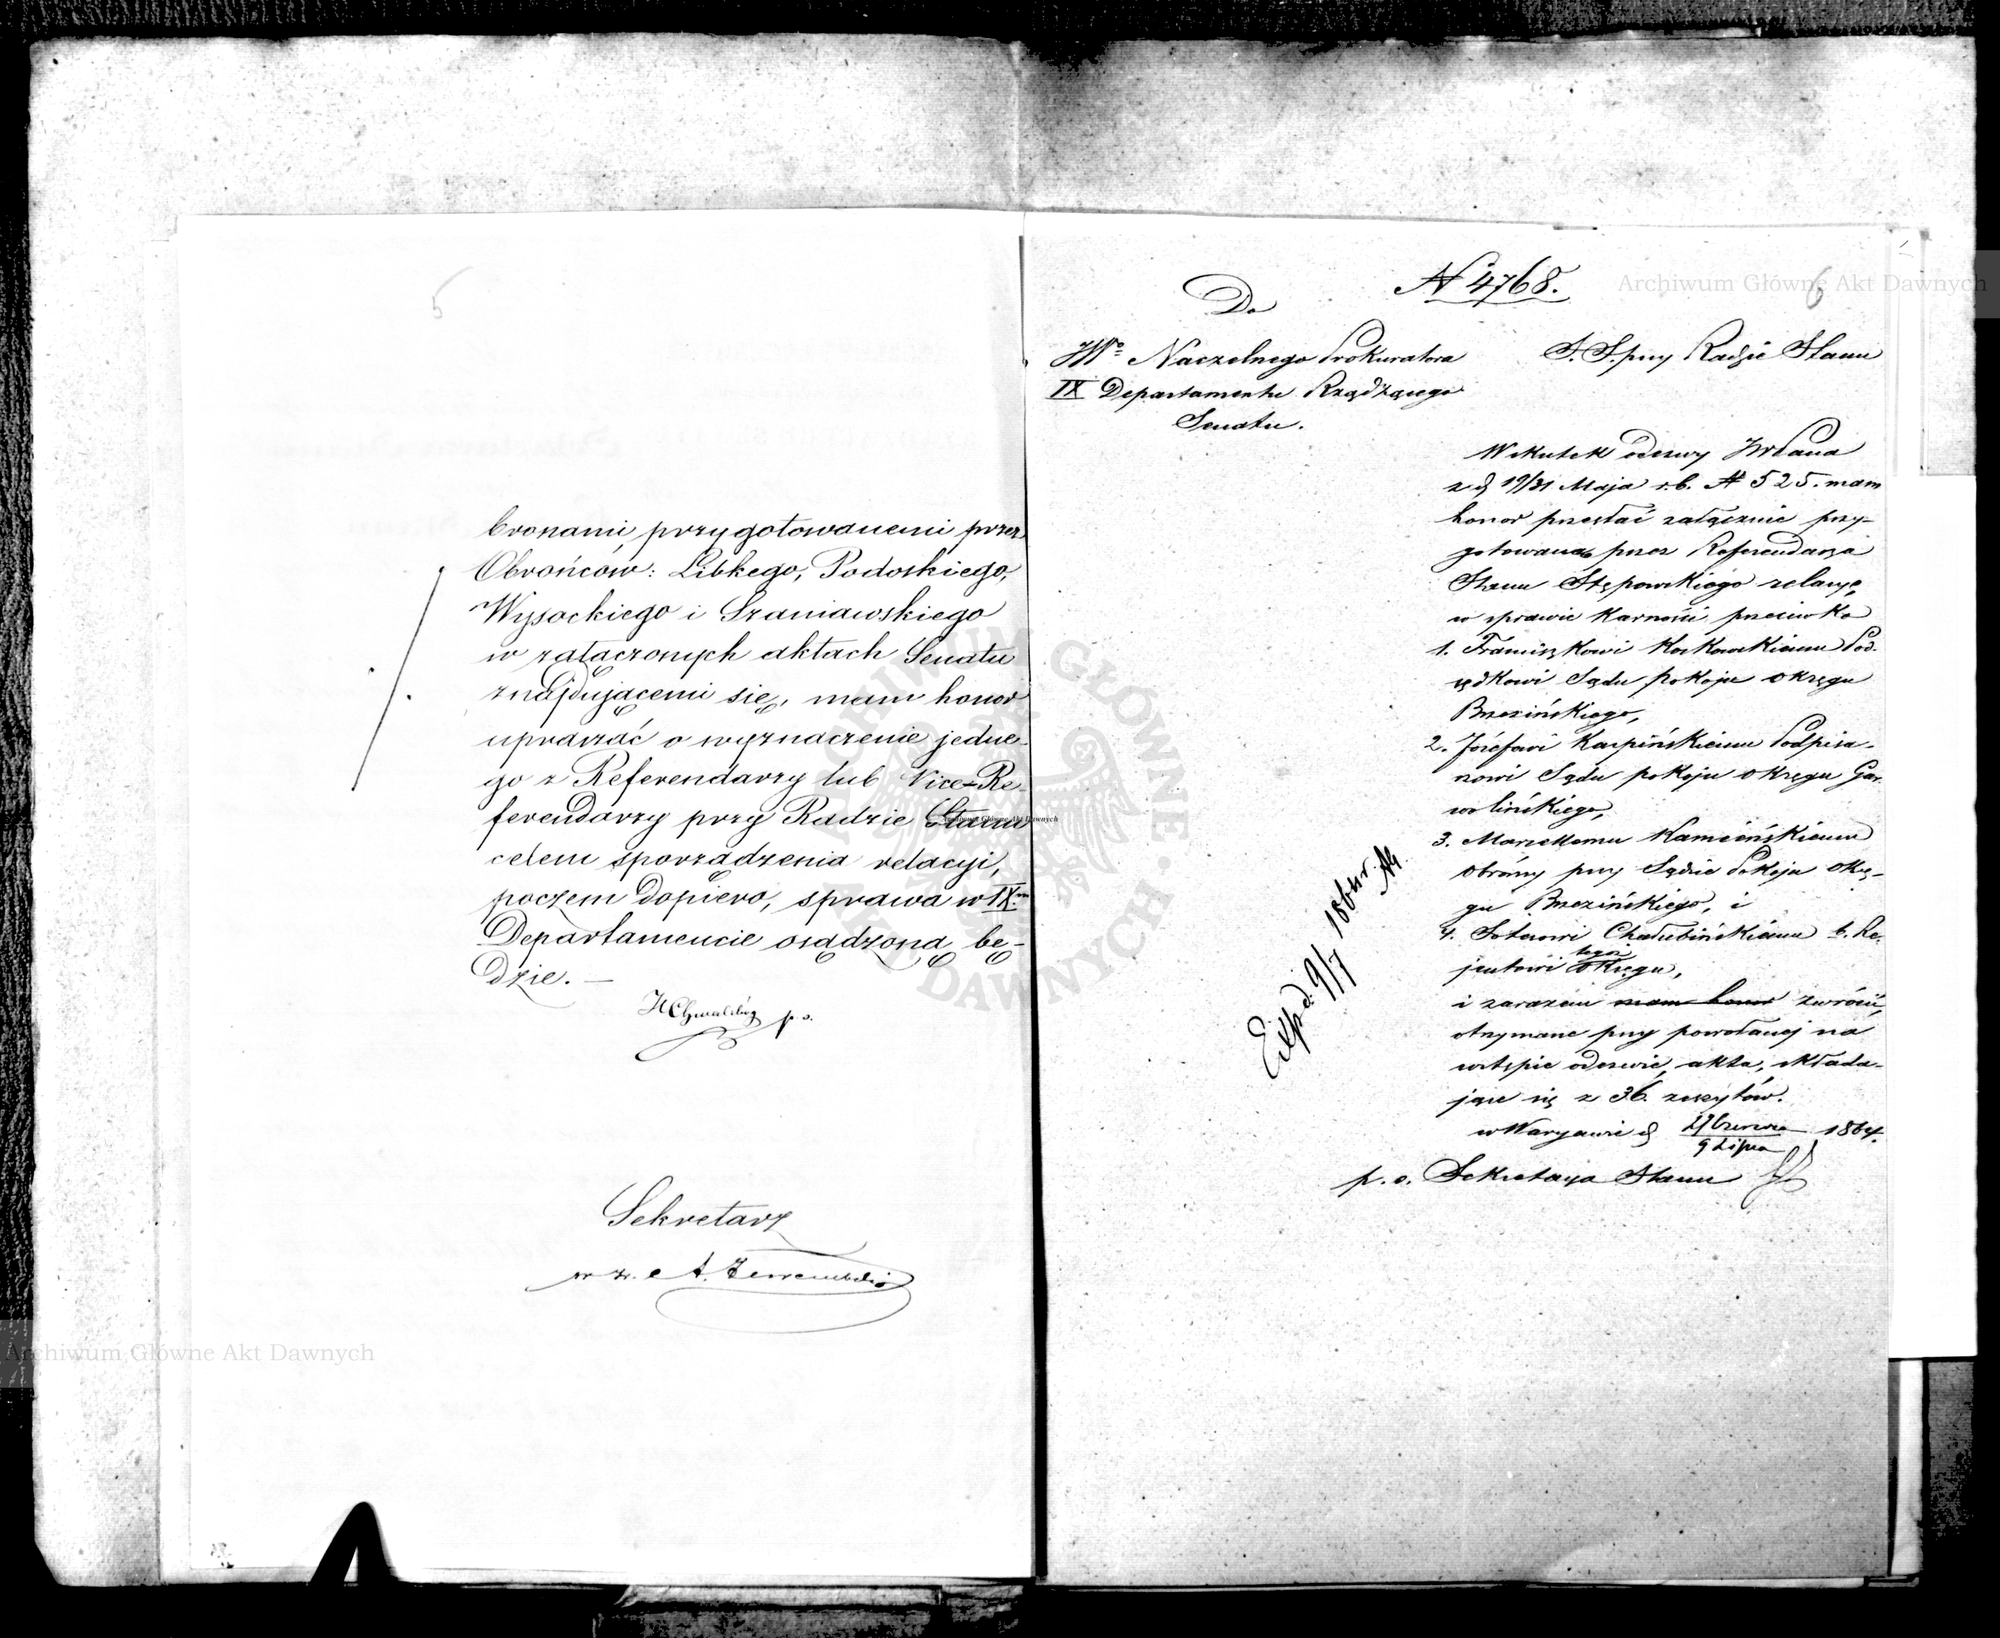 5
bronami, przygotowanemi przez
Obrońców: Libkego, Podoskiego,
Wysockiego i Szaniawskiego
w załączonych aktach Senatu
znajdującemi się, mam honor
upraszać o wyznaczenie jedne-
go z Referendarzy lub Vice-Re-
ferendarzy przy Radzie Stanu
celem sporządzenia relacyi,
poczem dopiero, sprawa w IXm
Departamencie osądzoną bę-
dzie. —
p. o.
Sekretarz
w z.
N 4768.
6
Do
JWo Naczelnego Prokuratora
IX Departamentu Rządzącego
Senatu.
S. S. przy Radzie Stanu
Wskutek odezwy JWPana
z d 19/31 Maja r.b. N 525. mam
honor przesłać załącznie przy-
gotowaną przez Referendarza
Stanu Stępowskiego relacyę,
w sprawie karnéj przeciwko
1. Franciszkowi Kosko​wskiemu Pod-
sędkowi Sądu pokoju okręgu
Brzezińskiego,
2. Józefowi Karpińskiemu Podpisa-
rzowi Sądu pokoju okręgu Gar-
wolińskiego,
3. Marcellemu Kamieńskiemu
obrońcy przy Sądzie Pokoju okrę-
gu Brzezińskiego, i
4. Soterowi Chałubińskiemu b. Re-
jentowi tegoż okręgu,
i zarazem mam honor zwrócić,
otrzymane przy powołanej na
wstępie odezwie, akta, składa-
jące się z 36. zeszytów.
w Warszawie d 27 Czerwca / 9 Lipca 1864.
p. o. Sekretarza Stanu
Exp. d. 9/7
Archiwum Główne Akt Dawnych
Archiwum Główne Akt Dawnych
Archiwum Główne Akt Dawnych
ARCHIWUM GŁÓWNE AKT DAWNYCH